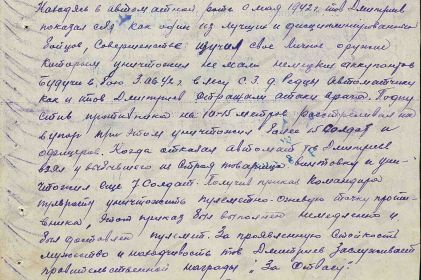 Находясь в автоматной роте с мая 1942 г. тов Дмитриев
показал себя как один из лучших и дисциплинированных
бойцов, Совершенстве изучил свое личное оружие
которым уничтожил не мало немецких оккупантов
Будучи в бою 3.08.42 г. в лесу С.З. д. Автоматчики
как и тов Дмитриев отражали атаки врага. Подпу
стив противника на 10-15 метров расстреливал на
в упор при этом уничтожил более 15 Солдат и
офицеров. Когда отказал автомат тов Дмитриев
взял у выбывшего из строя товарища винтовку и уни-
чтожил еще 7 Солдат. Получив приказ Командира
взвода уничтожить пулеметно-огневую точку проти-
вника, этот приказ был выполнен немедленно и
был доставлен пулемет. За проявленную Стойкость
мужество и находчивость тов Дмитриев заслуживает
правительственной награды „За Отвагу"